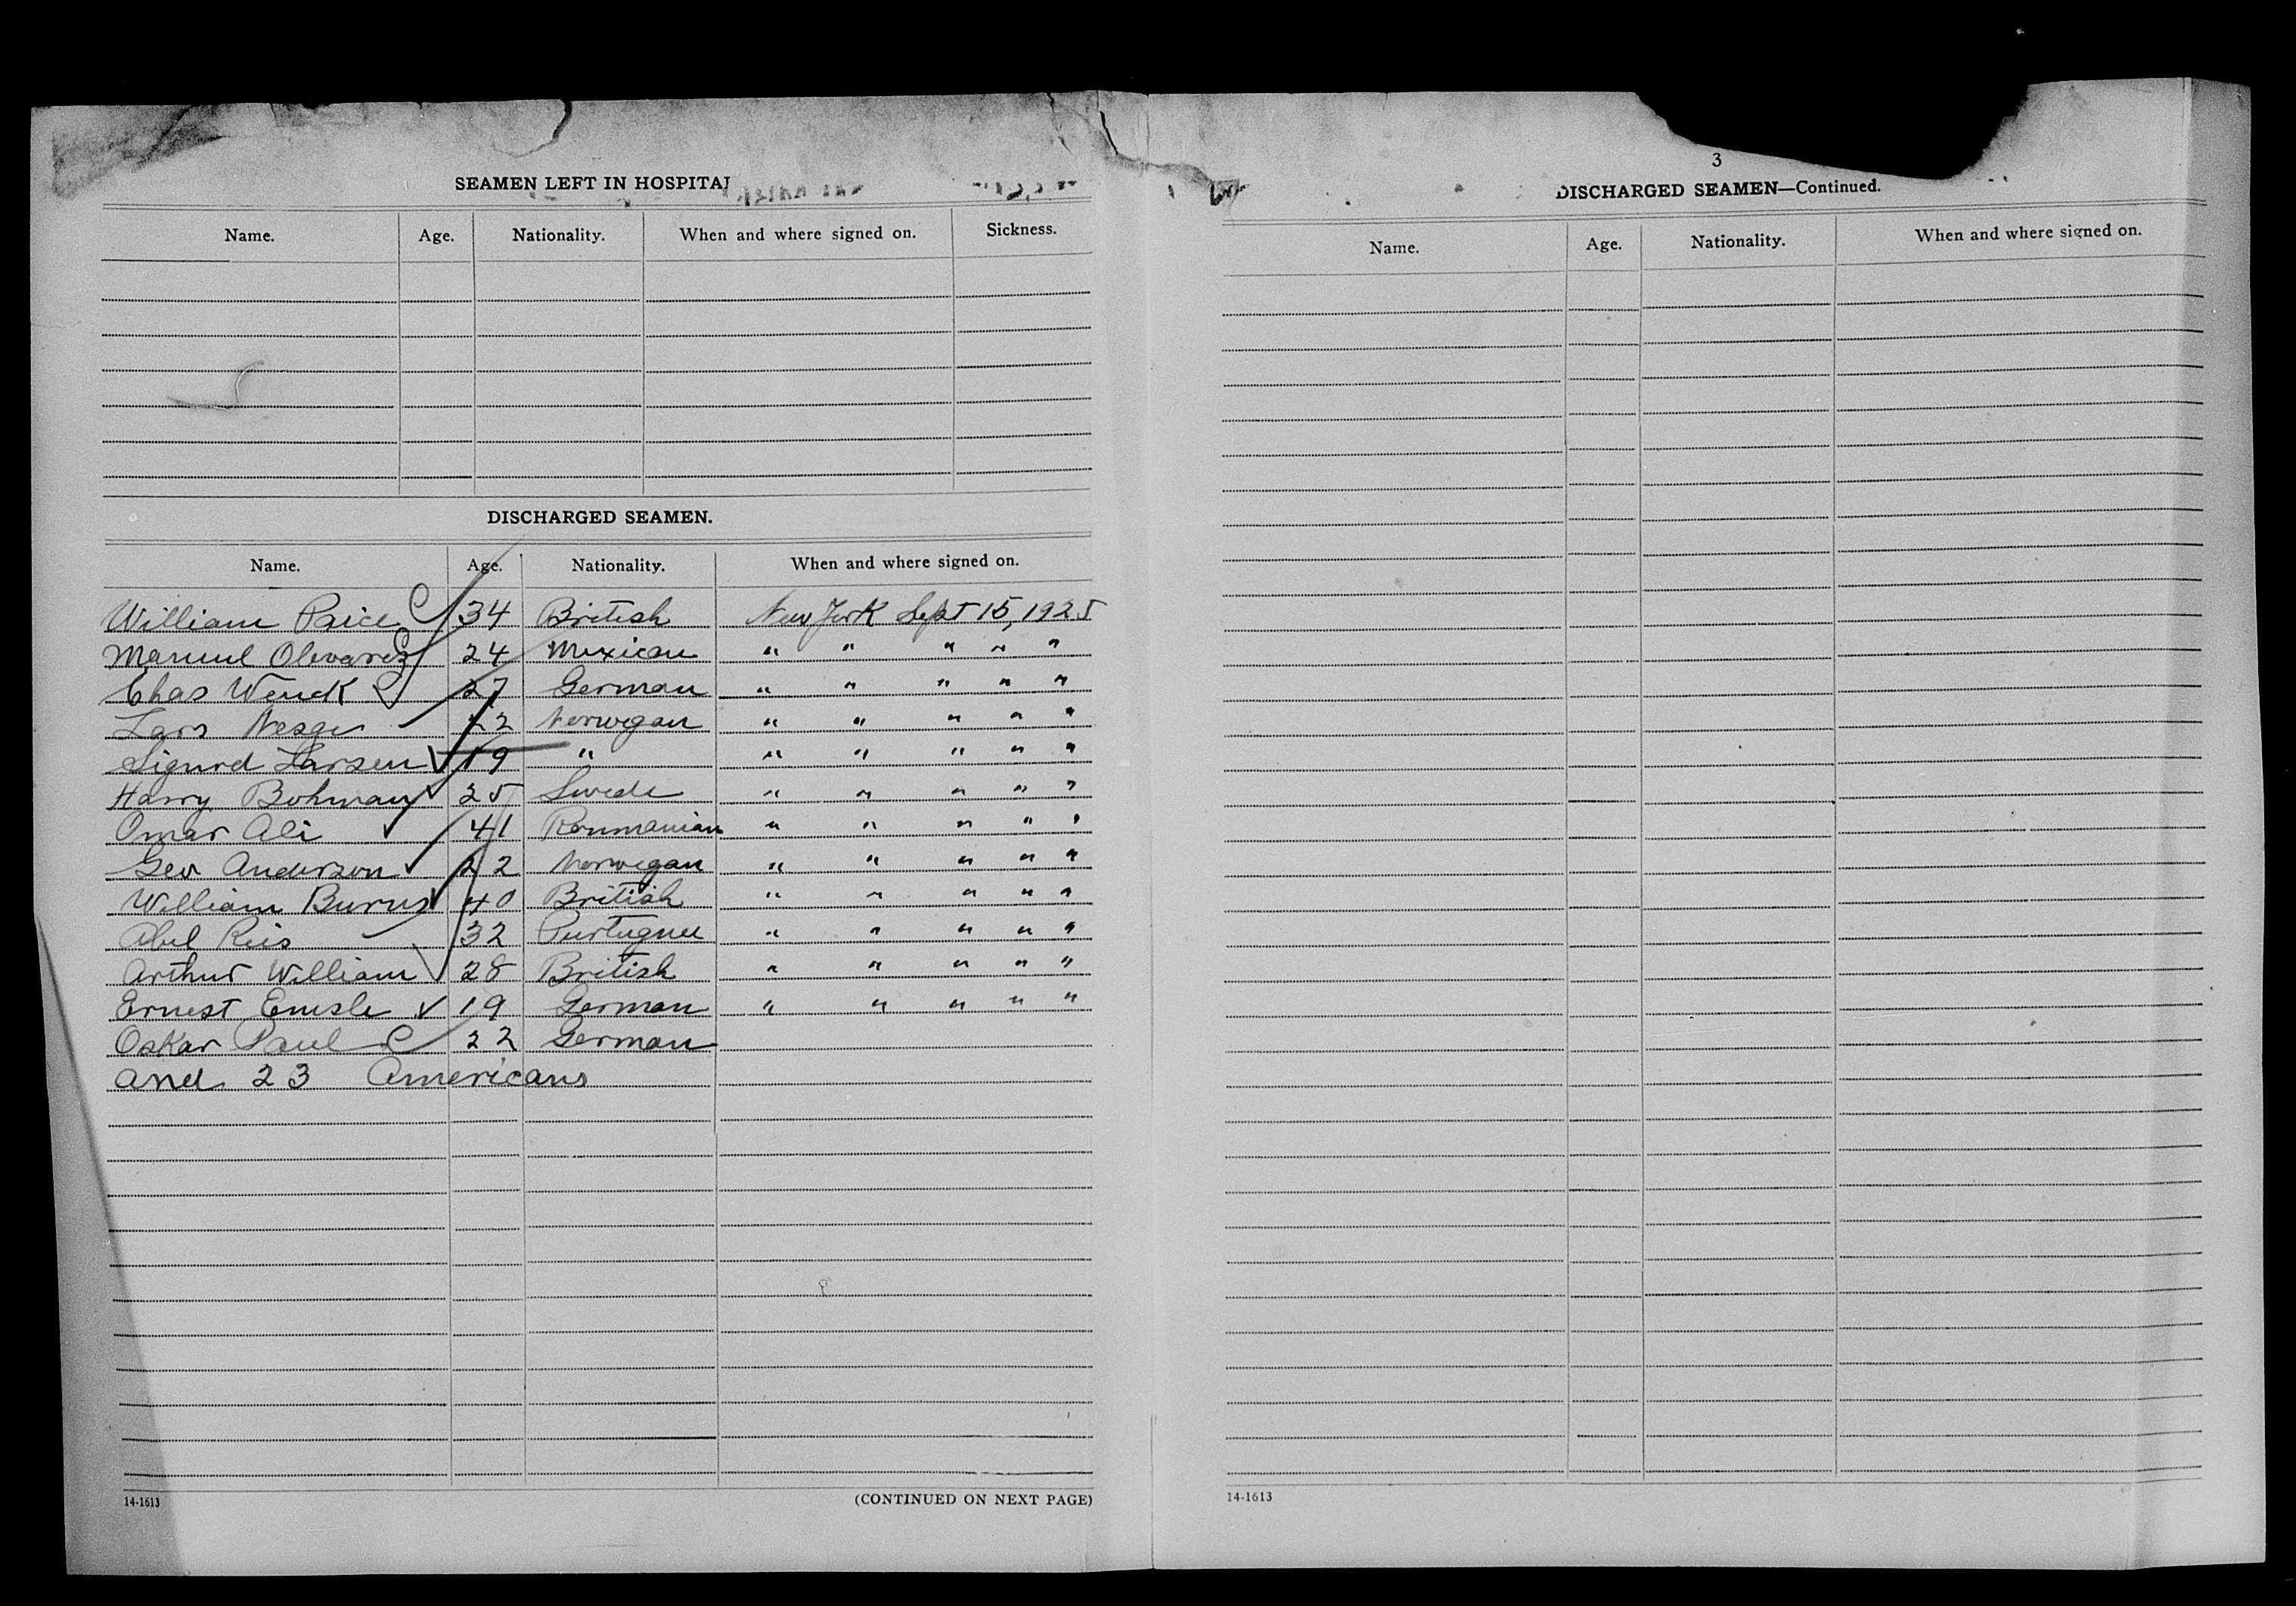 SEAMEN LEFT IN HOSPITAL
Name. Age. Nationality. When and where signed on. Sickness.
DISCHARGED SEAMEN.
Name. Age. Nationality. When and where signed on.
William Paice 34 British New York Sept 15, 1925
Manuel Olevarez 24 Mexican " " " " "
Chas Wenck 27 German " " " " "
Lars 22 Norwegan " " " " "
Sigurd Larsen 19 " " " " " "
Harry Bohman 25 Swede " " " " "
Omar Ali 41 Roumanian " " " " "
Geo Anderson 22 Norwegan " " " " "
William Burns 40 British " " " " "
Abel Reis 32 " " " " "
Arthur William 28 British " " " " "
Ernest 19 German " " " " "
Oskar Paul 22 German
and 23 Americans
14-1613
(CONTINUED ON NEXT PAGE)
3
DISCHARGED SEAMEN—Continued.
Name. Age. Nationality. When and where signed on.
14-1613